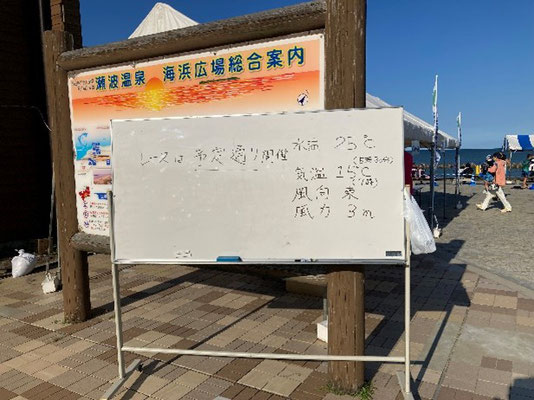 瀬波温泉 海浜広場総合案内
レースは 予定通り開催
水温 25℃
(5時30分)
気温 15℃
風向 東
風力 3m